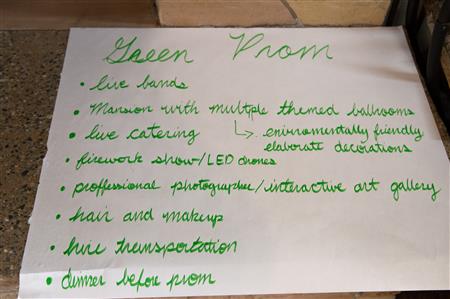 Green Prom
• live bands
• Mansion with multiple themed ballrooms
• live catering ↳ environmentally friendly
elaborate decorations
• firework show/LED drones
• proffessional photographer/interactive art gallery
• hair and makeup
• hire transportation
• dinner before prom